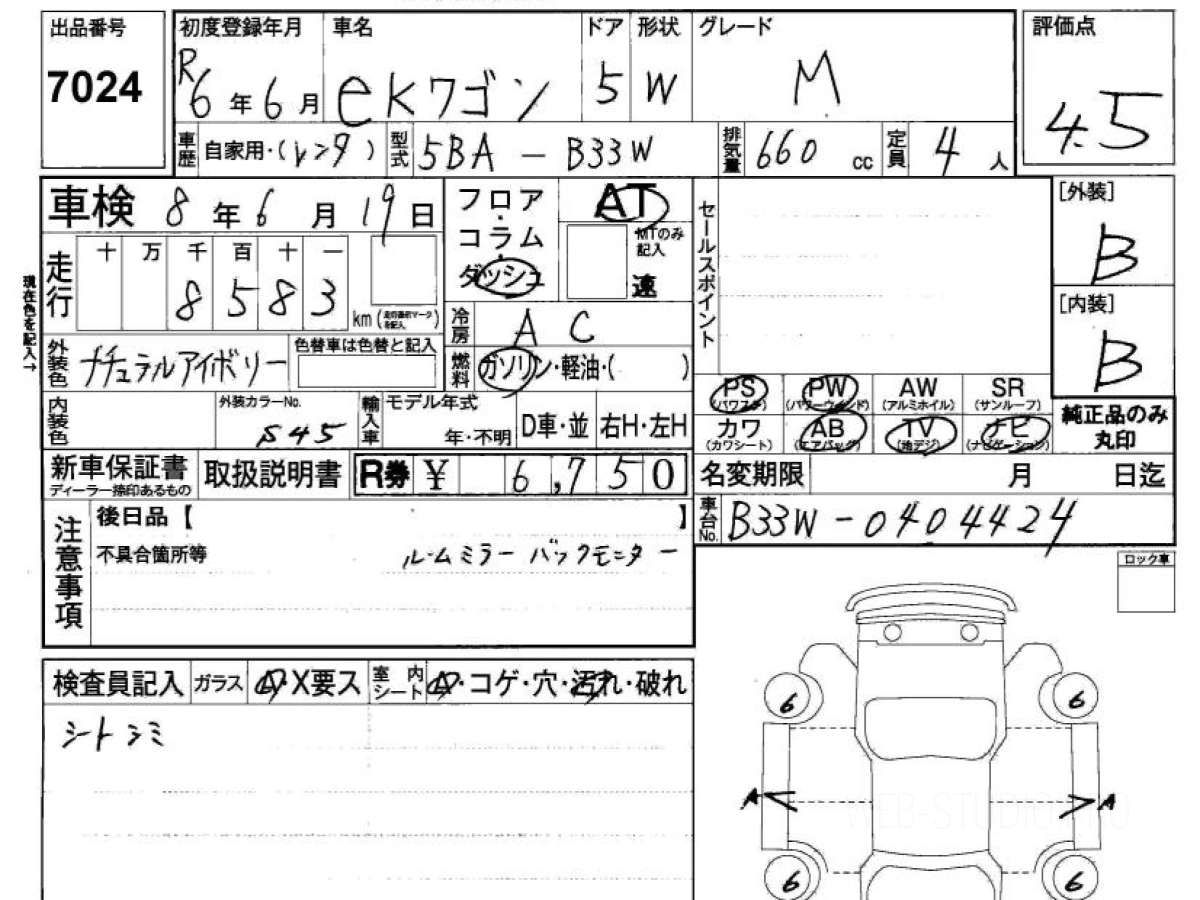 出品番号 初度登録年月 車名 ドア 形状 グレード 評価点
7024 R6年6月 ekワゴン 5 W M 4.5
車歴 自家用・(レンタ) 型式 5BA - B33W 排気量 660 cc 定員 4人
車検 8年6月19日 フロア・コラム・ダッシュ AT セールスポイント [外装]
MTのみ記入 速 B
走行 十 万 千 百 十 一 [内装]
8583 km (走行表示マークを記入) B
現在色を記入→
冷房 AC
外装色 ナチュラルアイボリー 色替車は色替と記入 燃料 ガソリン・軽油・( )
PS (パワステ) PW (パワーウィンド) AW (アルミホイル) SR (サンルーフ)
内装色 外装カラーNo. S45 輸入車 モデル年式 年・不明 D車・並 右H・左H
カワ (カワシート) AB (エアバッグ) TV (地デジ) ナビ (ナビゲーション) 純正品のみ丸印
新車保証書 ディーラー捺印あるもの 取扱説明書 R券 ¥ 6,750 名変期限 月 日迄
注意事項 後日品【 】 車台No. B33W-0404424
不具合箇所等 ルームミラー バックモニター
ロック車
検査員記入 ガラス A・X要ス 室内シート A・コゲ・穴・汚れ・破れ
シートシミ
6 6
A A
WEB-STUDIO PRO
6 6